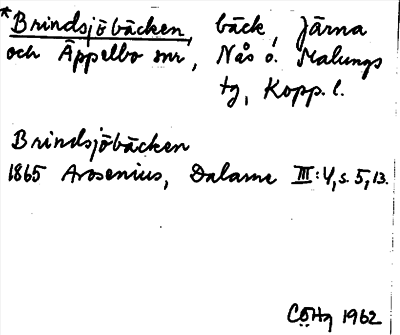 *Brindsjöbäcken, bäck, Järna
och Äppelbo snr, Nås o. Malungs
tg, Kopp. l.
Brindsjöbäcken
1865 Arosenius, Dalarne III:4, s. 5, 13.
CÖHg 1962